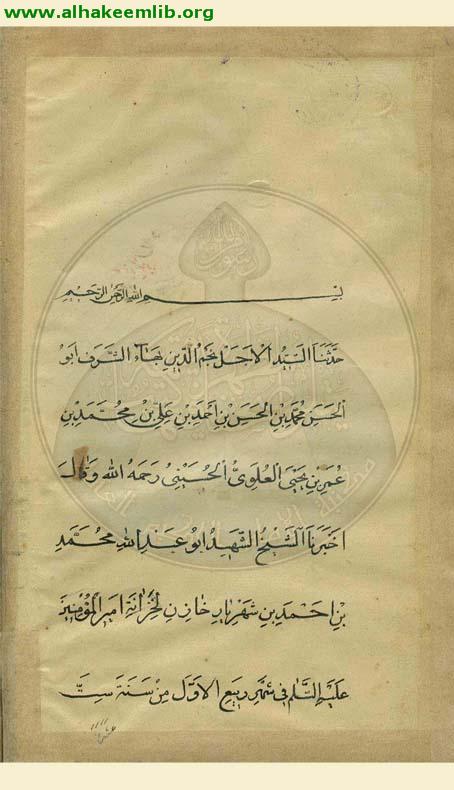 www.alhakeemlib.org
بسم الله الرحمن الرحيم
حَدَّثَنَا السَّيِّدُ الْأَجَلُّ نَجْمُ الدِّينِ بَهَاءُ الشَّرَفِ أَبُو
الْحَسَنِ مُحَمَّدُ بْنُ الْحَسَنِ بْنِ أَحْمَدَ بْنِ عَلِيِّ بْنِ مُحَمَّدِ بْنِ
عُمَرَ بْنِ يَحْيَى الْعَلَوِيُّ الْحُسَيْنِيُّ رَحِمَهُ اللهُ وَقَالَ
أَخْبَرَنَا الشَّيْخُ الشَّهِيدُ أَبُو عَبْدِ اللهِ مُحَمَّدِ
بْنِ أَحْمَدِ بْنِ شَهْرَيَارِ خَازِنِ لِخَزَانَةِ أَمِيرِ الْمُؤْمِنِينَ
عَلَيْهِ السَّلَامُ فِي شَهْرِ رَبِيعِ الْأَوَّلِ مِنْ سَنَةِ سِتَّ
عشرة